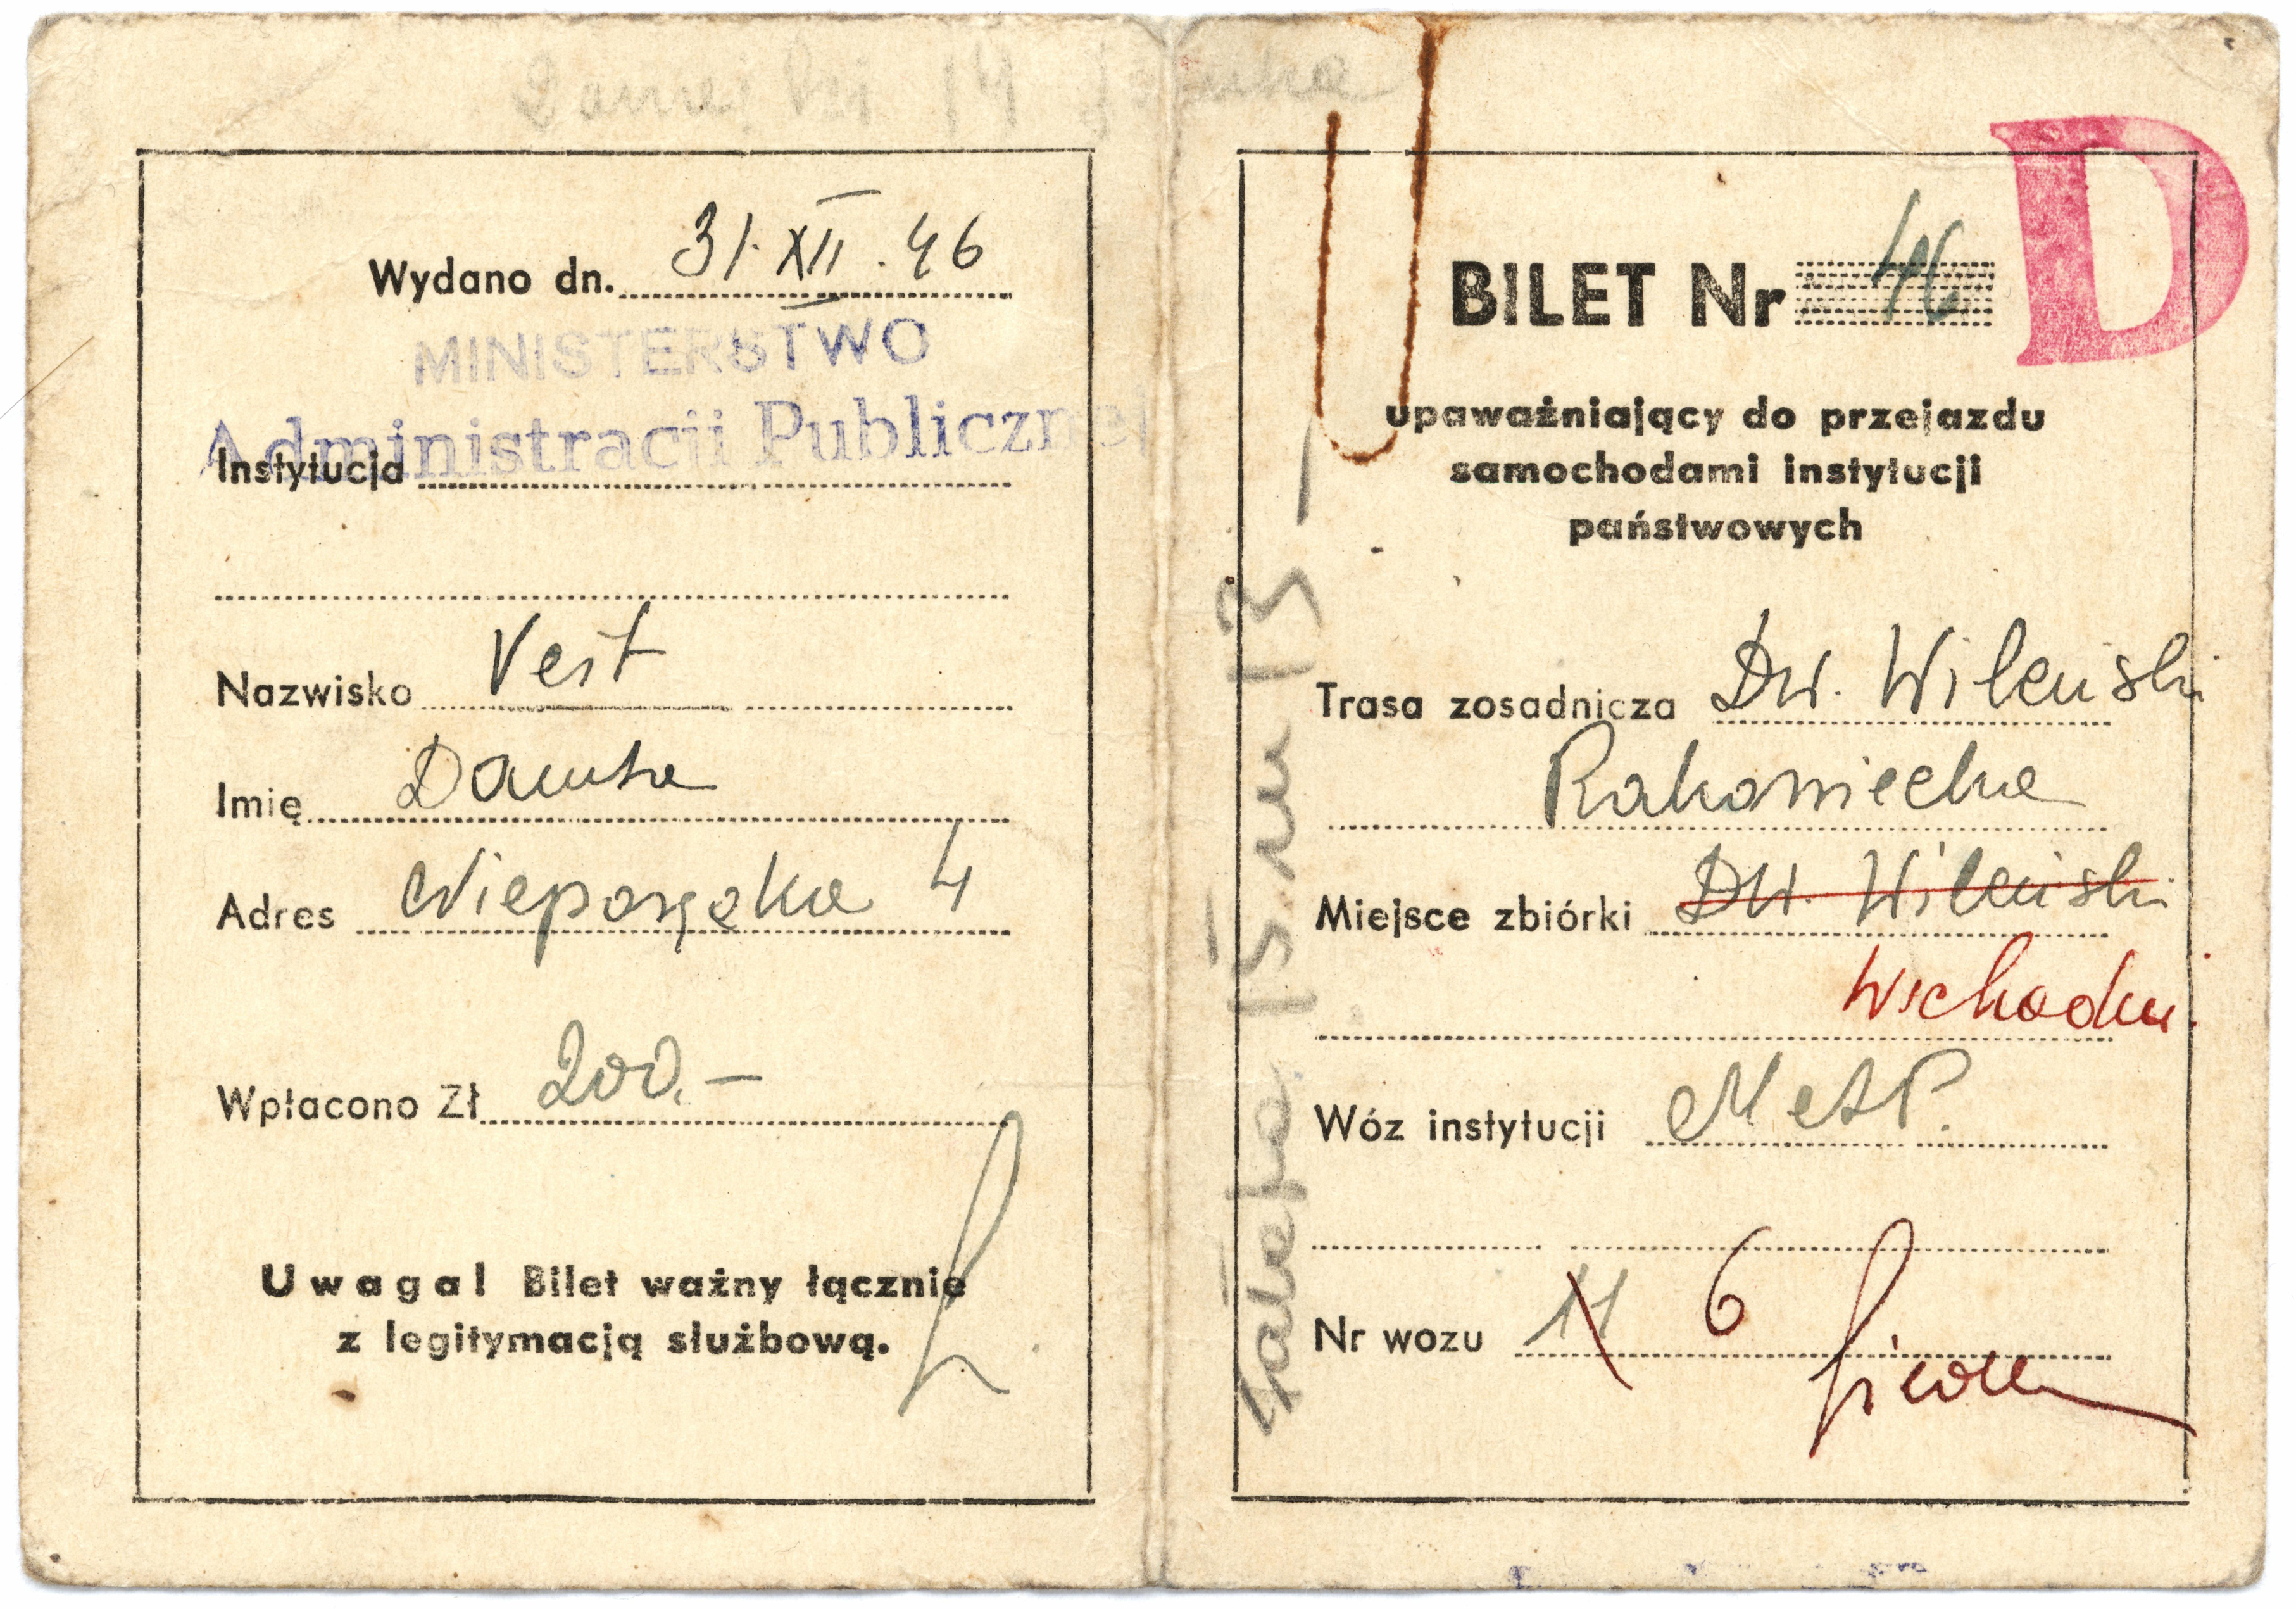 Wydano dn. 31·XII·46
MINISTERSTWO
Administracji Publicznej
Instytucja
Nazwisko Vest
Imię Danuta
Adres Nieporęcka 4
Wpłacono Zł 200.—
Uwaga! Bilet ważny łącznie
z legitymacją służbową.
D
BILET Nr 46
upaważniający do przejazdu
samochodami instytucji
państwowych
Trasa zosadnicza Dw. Wileński
Rakowiecka
Miejsce zbiórki Dw. Wileński
Wschodni
Wóz instytucji M.A.P.
Nr wozu 11 6